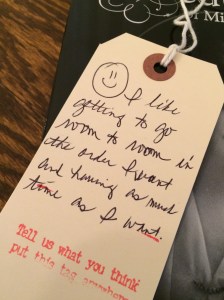 of Mi
I like
getting to go
room to room in
the order I want
and having as much
time as I want.
Tell us what you think
put this tag anywhere